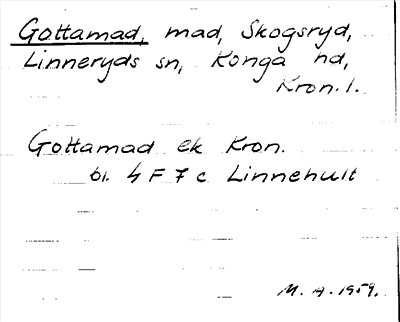 Gottamad, mad, Skogsryd,
Linneryds sn, Konga hd,
Kron. l.
Gottamad ek Kron.
bl. 4 F 7 c Linnehult
M. A. 1959.